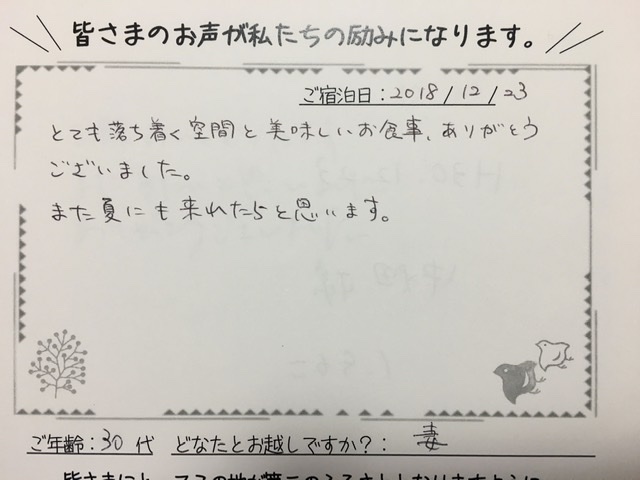 皆さまのお声が私たちの励みになります。
ご宿泊日：2018/12/23
とても落ち着く空間と美味しいお食事、ありがとう
ございました。
また夏にも来れたらと思います。
ご年齢：30代 どなたとお越しですか？：妻